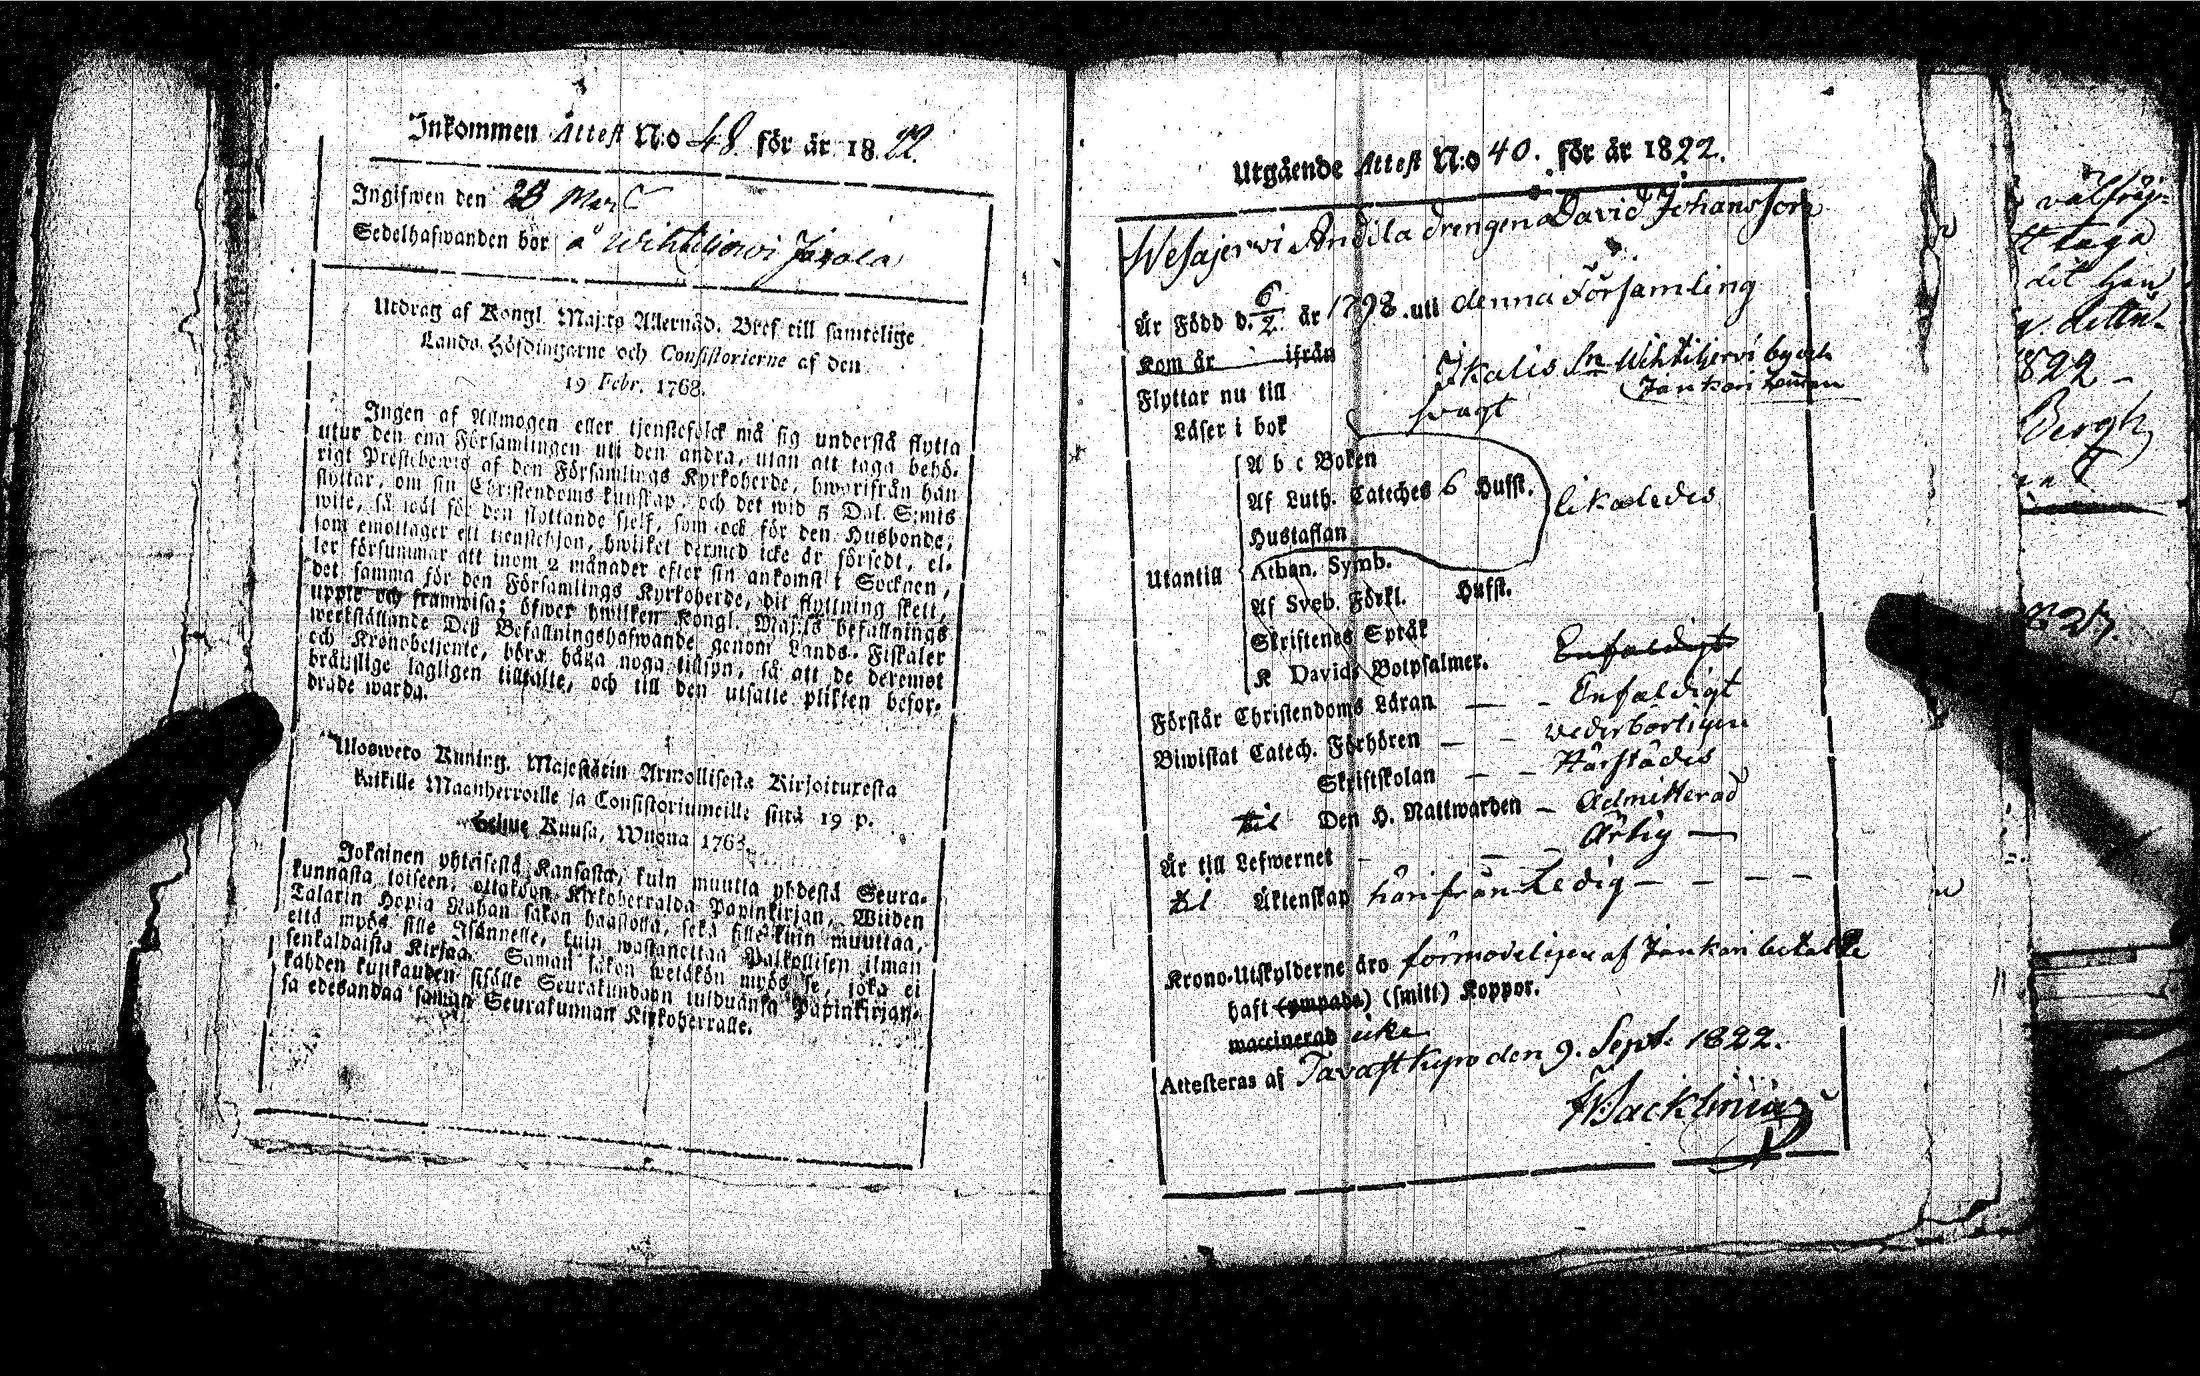 Inkommen Attest N:o 48. för år 1822.
Ingifwen den 28 Mart
Sedelhafwanden bor å Wihteljerwi Jäxola
Utdrag af Kongl. Maj:ts Allernåd. Bref till samtelige
Lands-Höfdingarne och Consistorierne af den
19 Febr. 1768.
Ingen af Allmogen eller tjenstefolck må sig understå flytta
utur den ena Församlingen uti den andra, utan att taga behö-
rigt Prestebewis af den Församlings Kyrkoherde, hwarifrån han
flyttar, om sin Christendoms kunskap, och det wid 5 Dal. S:mts
wite, så wäl för den flyttande sjelf, som ock för den Husbonde,
som emottager ett tjenstehjon, hwilket dermed icke är försedt, el-
ler försummar att inom 2 månader efter sin ankomst i Socknen,
det samma för den Församlings Kyrkoherde, dit flyttning skett,
uppte och framwisa; öfwer hwilken Kongl. Maj:ts befallnings
werkställande Deß Befallningshafwande genom Lands-Fiskaler
och Kronobetjente, böra hafwa noga tillsyn, så att de deremot
bråttslige lagligen tilltalte, och till den utsatte plikten befor-
drade warda.
Ulosweto Kuning. Majestätin Armollisesta Kirjoituxesta
kaikille Maanherroille ja Consistoriumeille siitä 19 p.
Helme Kuusa, Wuona 1768.
Jokainen yhteisestä Kansasta, kuin muutta yhdestä Seura-
kunnasta toiseen, ottakoon Kirkoherralda Papinkirjan, Wiiden
Talarin Hopia Rahan sakon haastolla, sekä sille kuin muuttaa,
että myös sille Isännelle, kuin wastanottaa Palkollisen ilman
senkaldaista Kirjaa. Saman sakon wetäkön myös se, joka ei
kahden kuukauden sisälle Seurakundaan tulduansa Papinkirjan-
sa edesandaa saman Seurakunnan Kirkoherralle.
Utgående Attest N:o 40. för år 1822.
Wesajerwi Andila drengen David Johansson
Är Född d. 6/2 år 1798. uti denna Församling
Kom år ifrån
Flyttar nu till Ikalis Sn Wihteljerwi by och
Jankari hemman
Läser i bok svagt
A b c Boken
Af Luth. Cateches 6 Hufst.
Hustaflan
likaledes
Utantill
Athan. Symb.
Af Sveb. Förkl. Hufst.
Skriftenes Språk
K Davids Botpsalmer.
Enfaldigt
Förstår Christendoms Läran — - Enfaldigt
Biwistat Catech. Förhören — - vederbörligen
Skriftskolan — - Härstädes
til Den H. Nattwarden — Admitterad
Är till Lefwernet - — - Ärlig —
til Äktenskap härifrån Ledig — — — —
Krono-Utskylderne äro förmodeligen af Jankari betalte
haft (ympade) (smitt) Koppor.
waccinerad icke
Attesteras af Tavastkyro den 9. Sept. 1822.
välfrey-
taga
dit han
822 —
Bergh